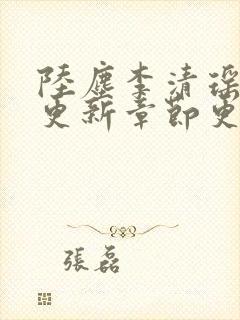 陸塵李清瑶
更新章節更
張磊